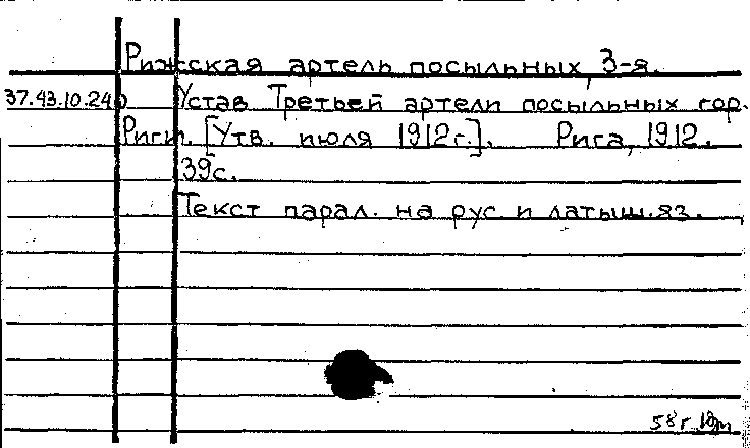 Рижская артель посыльных, 3-я.
37.43.10.240 Устав Третьей артели посыльных гор.
Риги. [Утв. июля 1912г.]. Рига, 1912.
39с.
Текст парал. на рус. и латыш. яз.
58г.